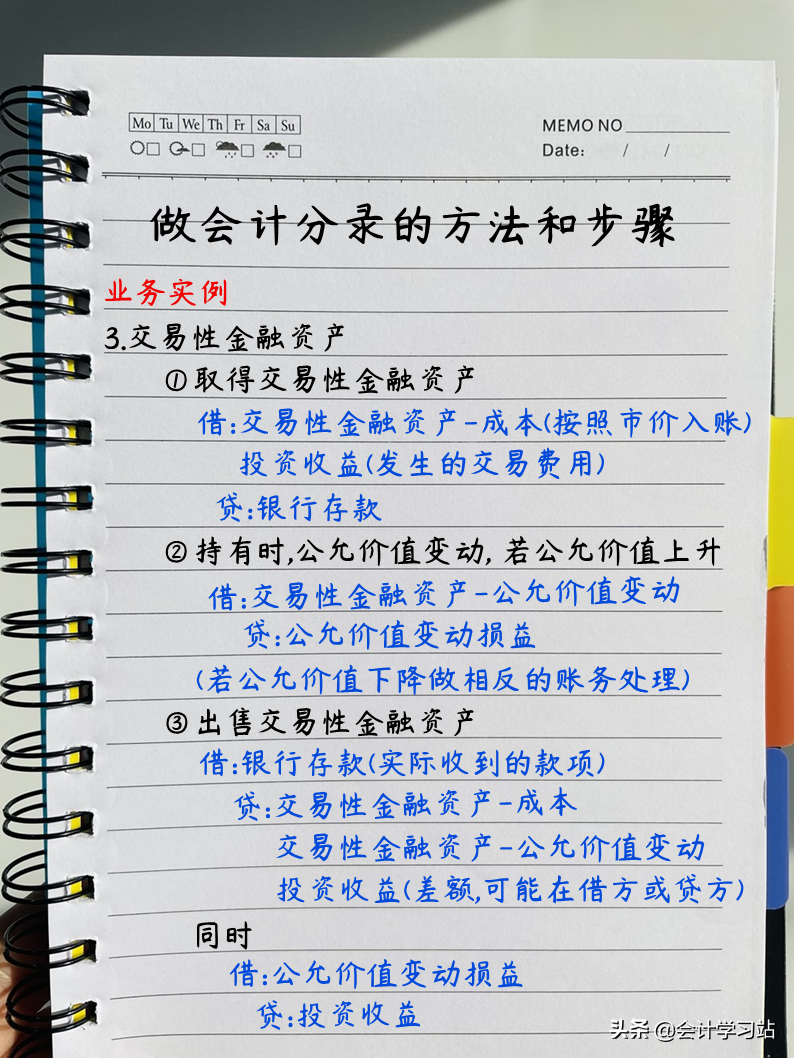 Mo Tu We Th Fr Sa Su
MEMO NO
Date: / /
做会计分录的方法和步骤
业务实例
3.交易性金融资产
①取得交易性金融资产
借:交易性金融资产-成本(按照市价入账)
投资收益(发生的交易费用)
贷:银行存款
②持有时,公允价值变动,若公允价值上升
借:交易性金融资产-公允价值变动
贷:公允价值变动损益
(若公允价值下降做相反的账务处理)
③出售交易性金融资产
借:银行存款(实际收到的款项)
贷:交易性金融资产-成本
交易性金融资产-公允价值变动
投资收益(差额,可能在借方或贷方)
同时
借:公允价值变动损益
贷:投资收益
头条 @会计学习站